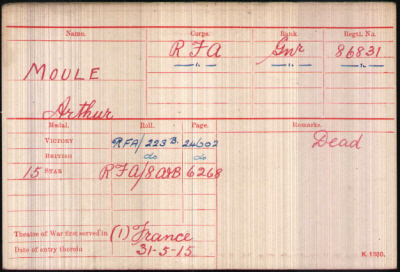 Name. Corps. Rank. Regtl. No.
R F A Gnr 86831
MOULE
Arthur
Medal. Roll. Page. Remarks.
VICTORY RFA/223 B. 24602 Dead
BRITISH do do
15 STAR RFA/8 6268
Theatre of War first served in (1) France
Date of entry therein 31-5-15
K. 1380.